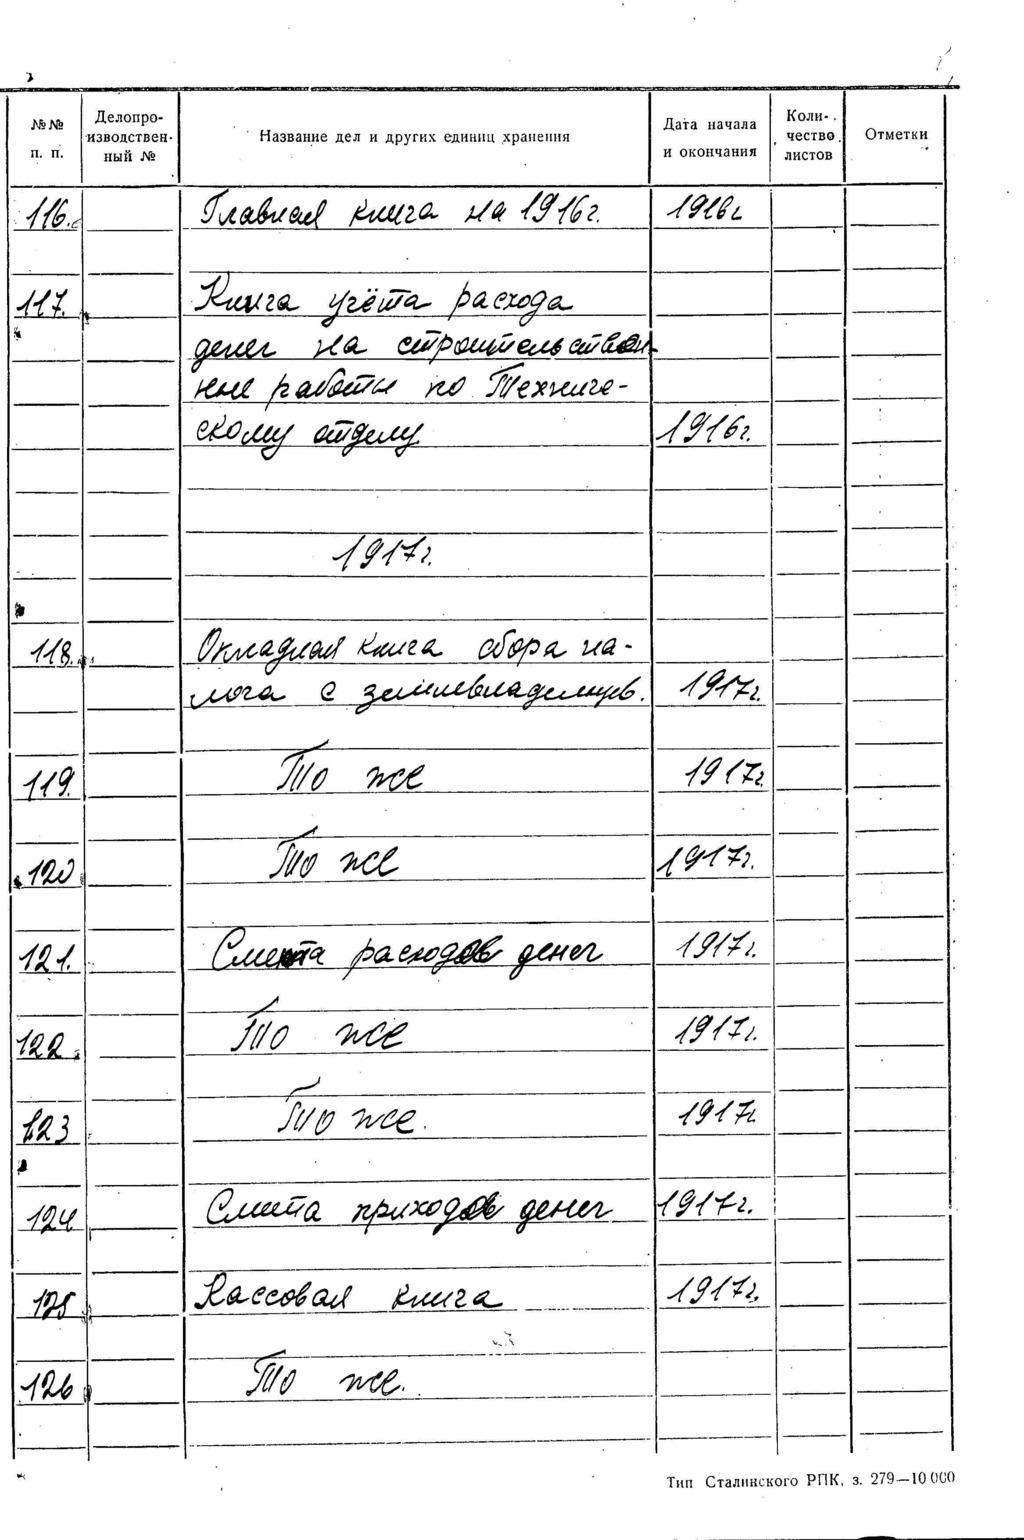 №№ п. п. Делопроизводственный № Название дел и других единиц хранения Дата начала и окончания Количество листов Отметки
116. Главная книга на 1916г. 1916г
117. Книга учёта расхода
денег на строительствен-
ные работы по Техниче-
скому отделу 1916г.
1917г.
118. Окладная книга сбора на-
лога с землевладельцев. 1917г.
119. То же 1917г.
120 То же 1917г.
121. Смета расходов денег 1917г.
122 То же 1917г.
123 То же. 1917г
124 Смета приходов денег 1917г.
125 Кассовая книга 1917г.
126 То же.
Тип Сталинского РПК, з. 279—10 000